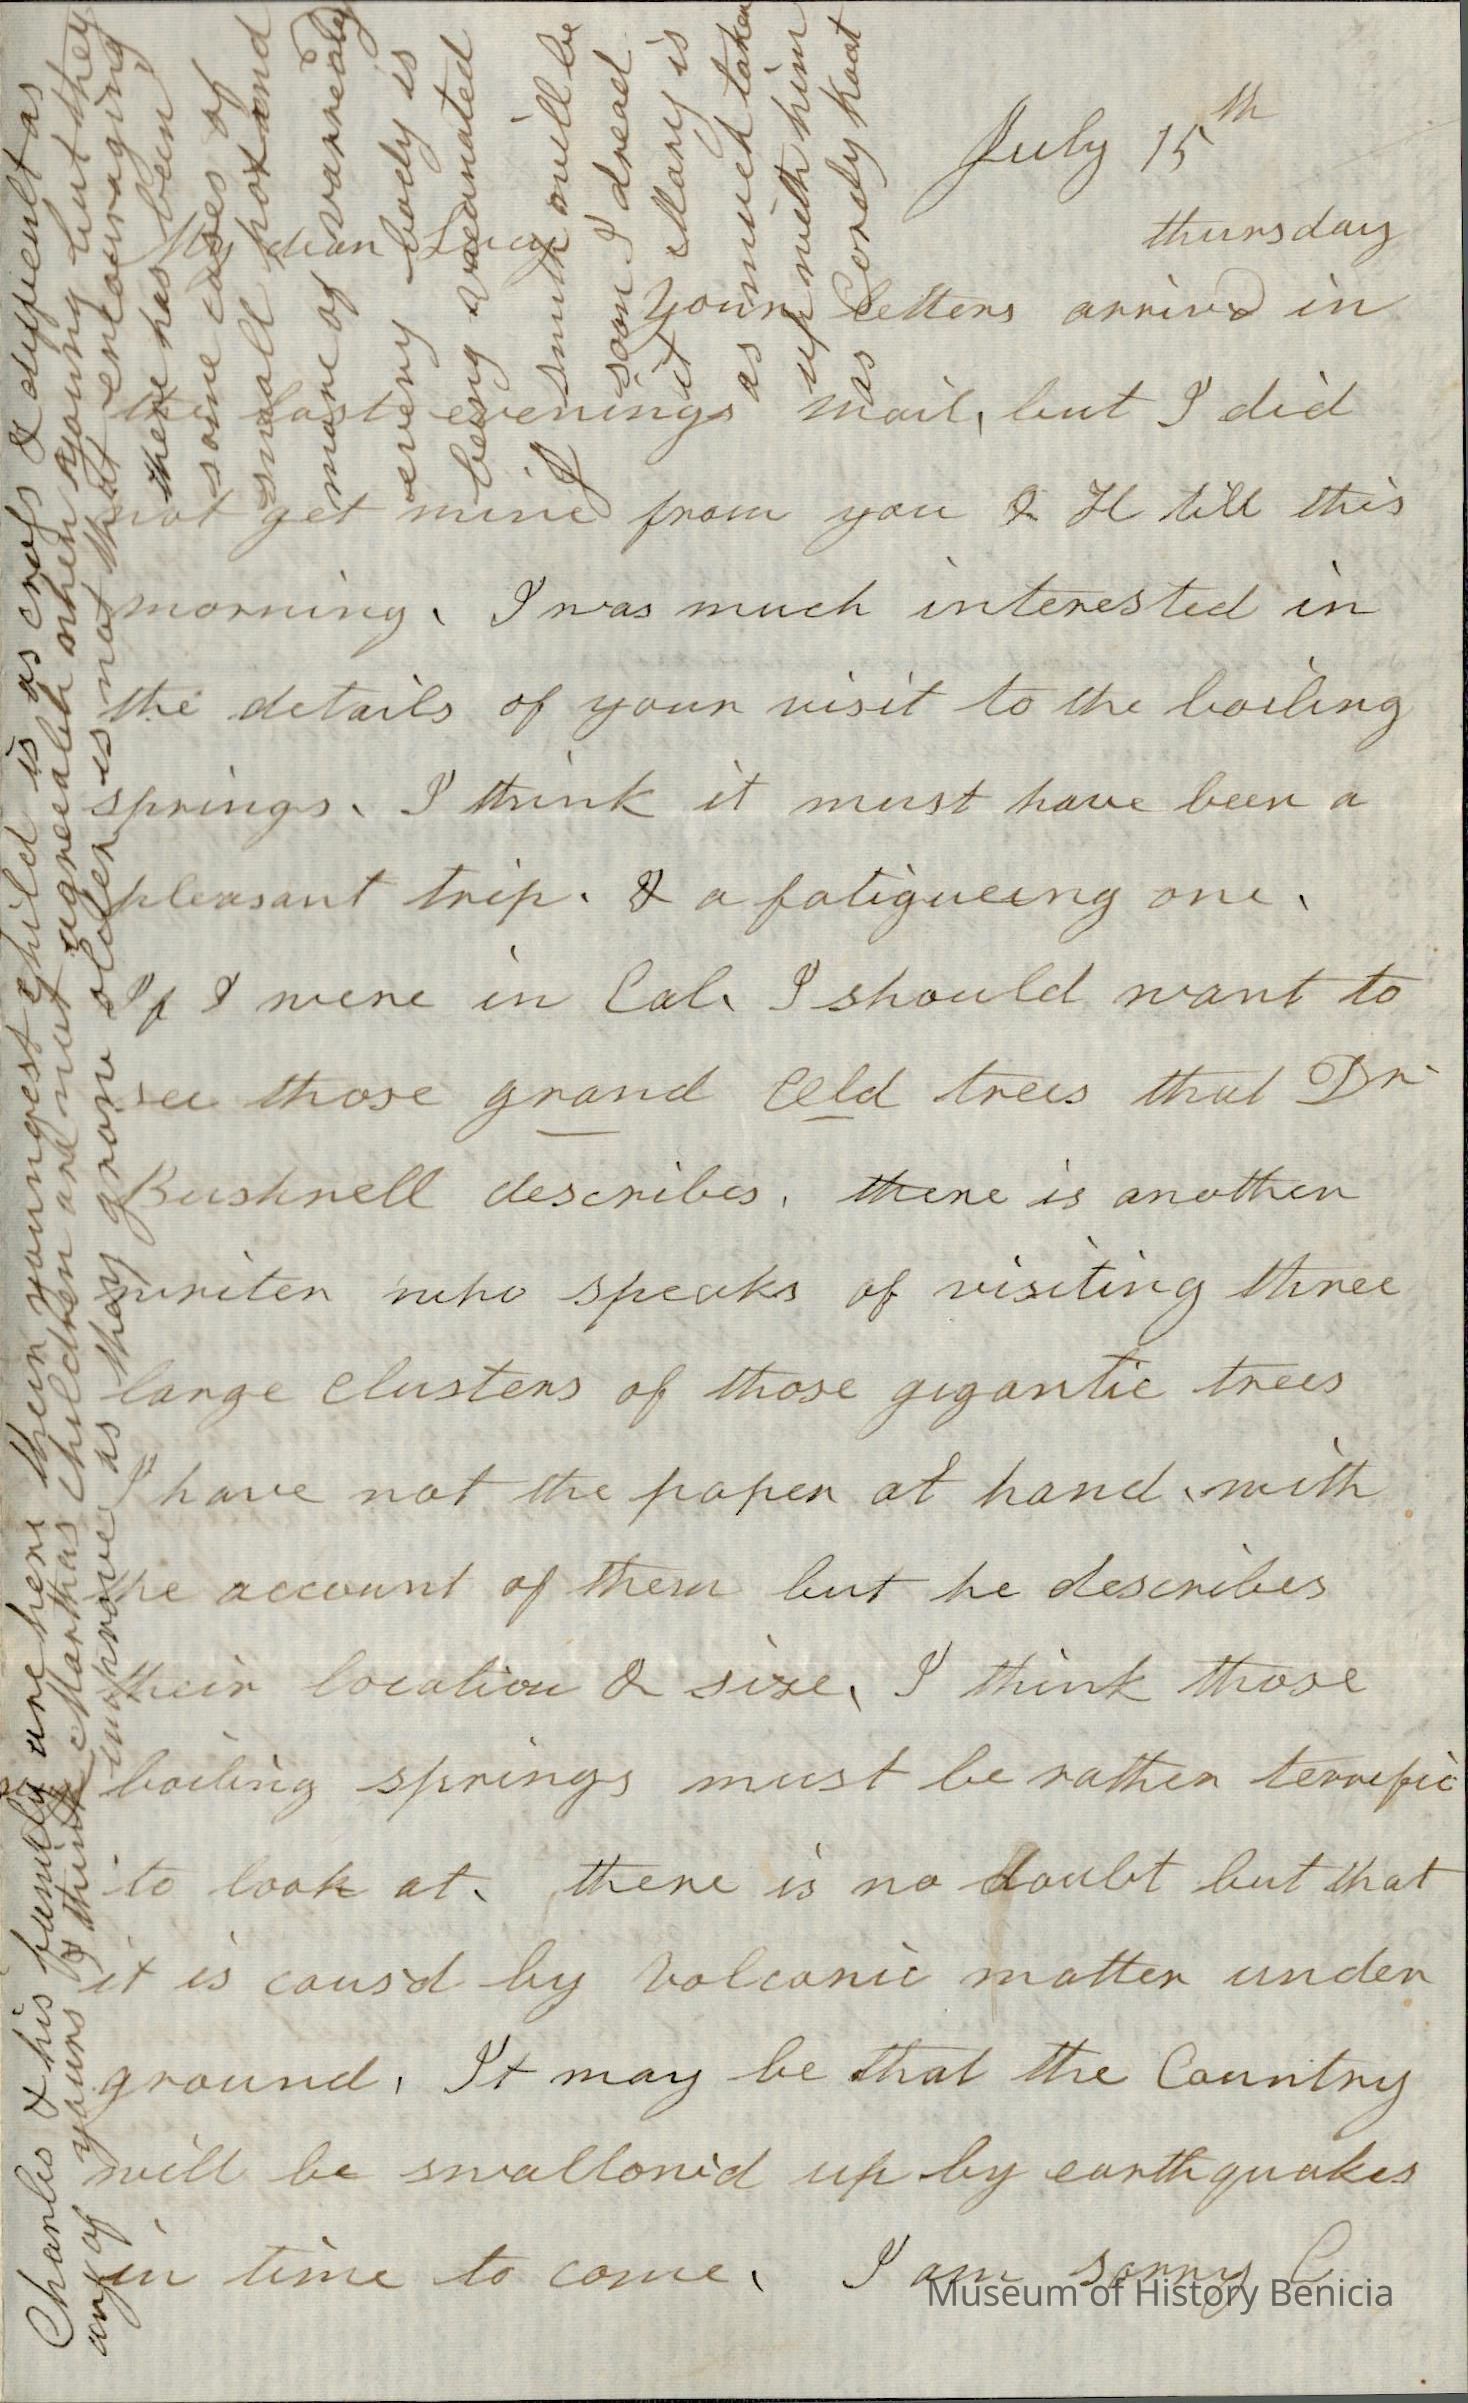 July 15th
thursday
My dear Lucy
Your letters arrivd in
the last evenings mail, but I did
not get mine from you & H till this
morning. I was much interested in
the details of your visit to the boiling
springs. I think it must have been a
pleasant trip. & a fatigueing one.
If I were in Cal. I should want to
see those grand Old trees that Dr
Bushnell describes. there is another
writer who speaks of visiting three
large clusters of those gigantic trees
I have not the paper at hand, with
the account of them but he describes
their location & size, I think those
boiling springs must be rather terrific
to look at. there is no doubt but that
it is caus'd by Volcanic matter under
ground. It may be that the Country
will be swallow'd up by earthquakes
in time to come. I am sorry C.
Charles & his family are here their youngest child is as cross & different as
any of yours & think Marthas children are not agreeable when young but they
improve as they grow older is not that encouraging
there has been
some cases of
small pox and
more of varrealy
every body is
being vaccinated
I
Smith will be
soon I dread
it Mary is
as much taken
up with him
as Cordy
Museum of History Benicia